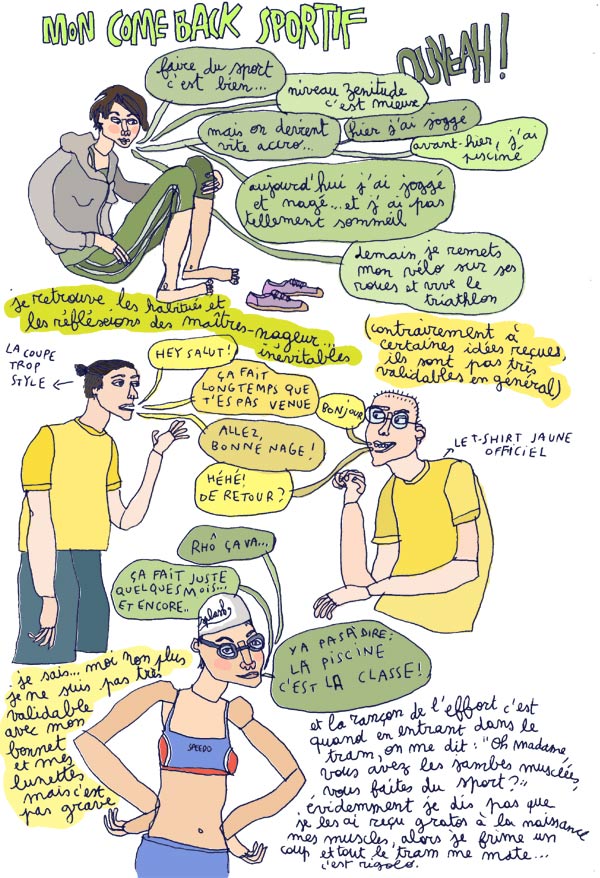 MON COME BACK SPORTIF
OUYEAH!
faire du sport
c'est bien...
niveau zenitude
c'est mieux
mais on devient
vite accro...
hier j'ai joggé
avant-hier, j'ai
pisciné
aujourd'hui j'ai joggé
et nagé...et j'ai pas
tellement sommeil
demain je remets
mon vélo sur ses
roues et vive le
triathlon
je retrouve les habitués et
les réfléxions des maîtres-nageur...
inévitables
(contrairement à
certaines idées reçues,
ils sont pas très
validables en général)
LA COUPE
TROP
STYLE
HEY SALUT!
ÇA FAIT
LONGTEMPS QUE
T'ES PAS VENUE
ALLEZ,
BONNE NAGE!
BONJOUR
HÉHÉ!
DE RETOUR?
LE T-SHIRT JAUNE
OFFICIEL
RHÔ ÇA VA...
ÇA FAIT JUSTE
QUELQUES MOIS...
ET ENCORE..
splash
Y A PAS À DIRE:
LA PISCINE
C'EST LA CLASSE!
SPEEDO
je sais... moi non plus
je ne suis pas très
validable
avec mon
bonnet
et mes
lunettes
mais c'est
pas grave
et la rançon de l'effort c'est
quand en entrant dans le
tram, on me dit: "Oh madame,
vous avez les jambes musclées,
vous faites du sport?"
évidemment je dis pas que
je les ai reçu gratos à la naissance
mes muscles, alors je frime un
coup et tout le tram me mate...
c'est rigolo.